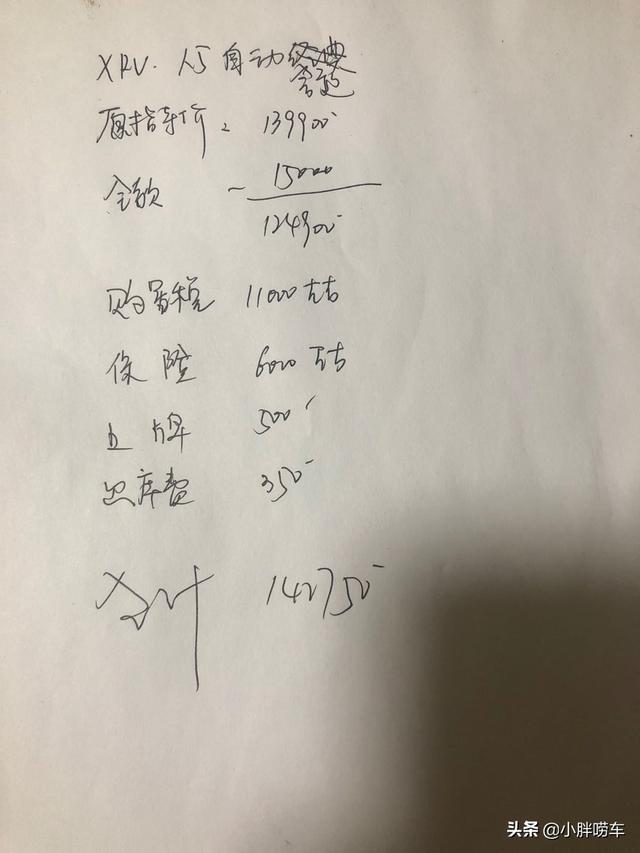 XRV. 1.5 自动
舒适
原指导价: 139900
全款 - 15000
124900
购置税 11000左右
保险 6000左右
上牌 500
出库费 350
合计 142750
头条 @小胖唠车